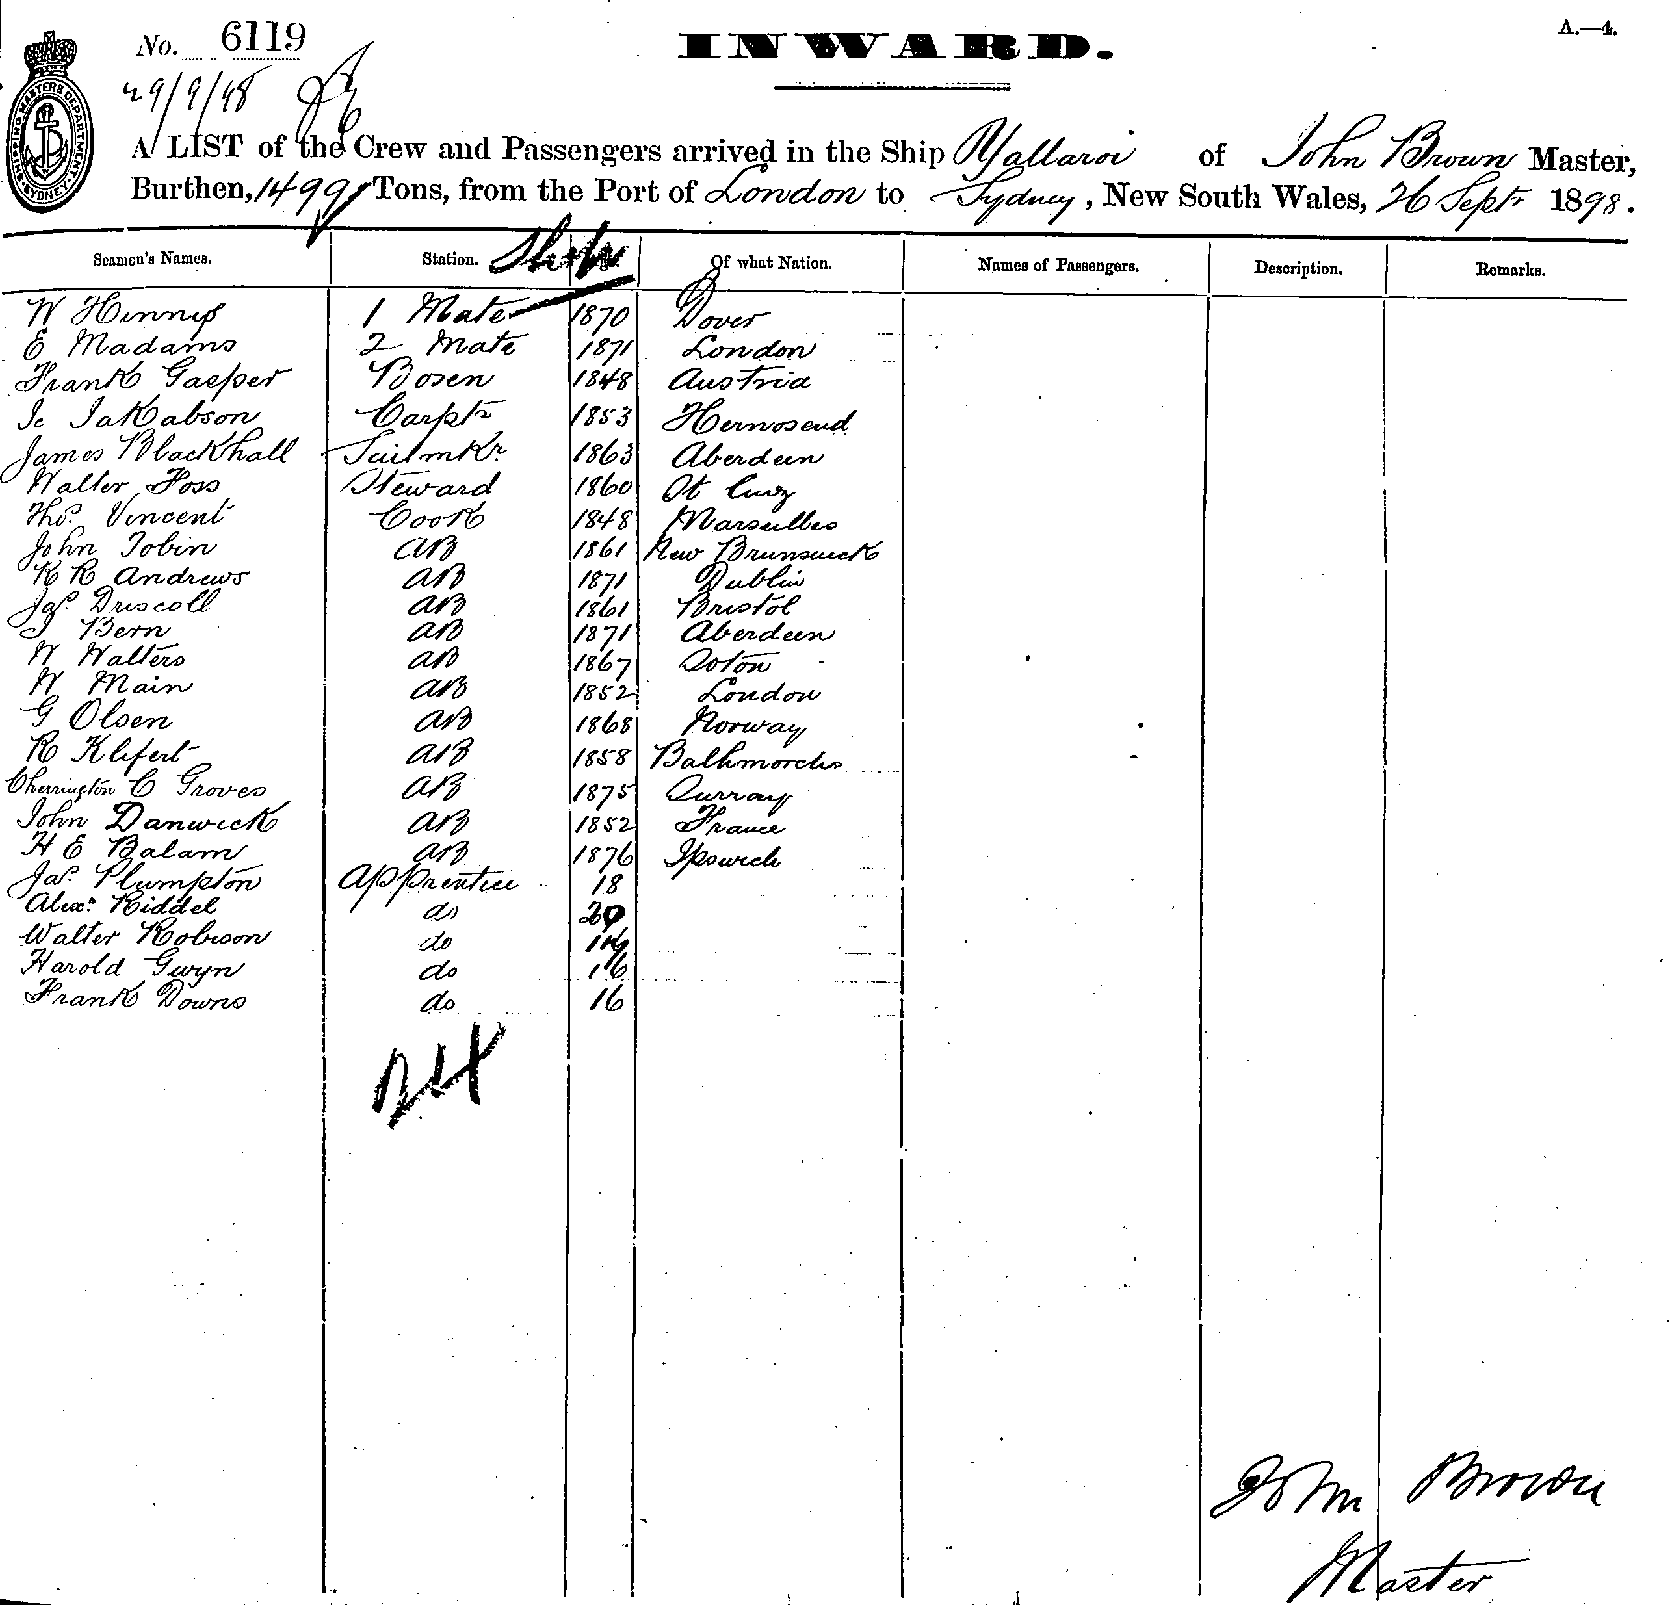 No. 6119
INWARD.
A.—4.
29/9/98
A LIST of the Crew and Passengers arrived in the Ship Yallaroi of John Brown Master,
Burthen, 1499 Tons, from the Port of London to Sydney, New South Wales, 26 Sept 1898.
Ship
Seamen's Names. Station. Of what Nation. Names of Passengers. Description. Remarks.
W 1 Mate 1870 Dover
E Madams 2 Mate 1871 London
Frank Gasper Bosen 1848 Austria
Jc Jakabson Carptr 1853 Hernosend
James Blackhall Sailmkr 1863 Aberdeen
Walter Foss Steward 1860 St
Thos. Vincent Cook 1848 Marseilles
John Tobin AB 1861 New Brunswick
R R Andrews AB 1871 Dublin
Jas. Driscoll AB 1861 Bristol
Bern AB 1871 Aberdeen
W Walters AB 1867 Soton
W Main AB 1852 London
G Olsen AB 1868 Norway
R Klefert AB 1858
Cherrington C Groves AB 1875 Surray
John Danwick AB 1852 France
H E Balam AB 1876 Ipswich
Jas. Plumpton Apprentice 18
Alexr. Riddel do 20
Walter Robison do
Harold Gwyn do 16
Frank Downs do 16
24
John Brown
Master